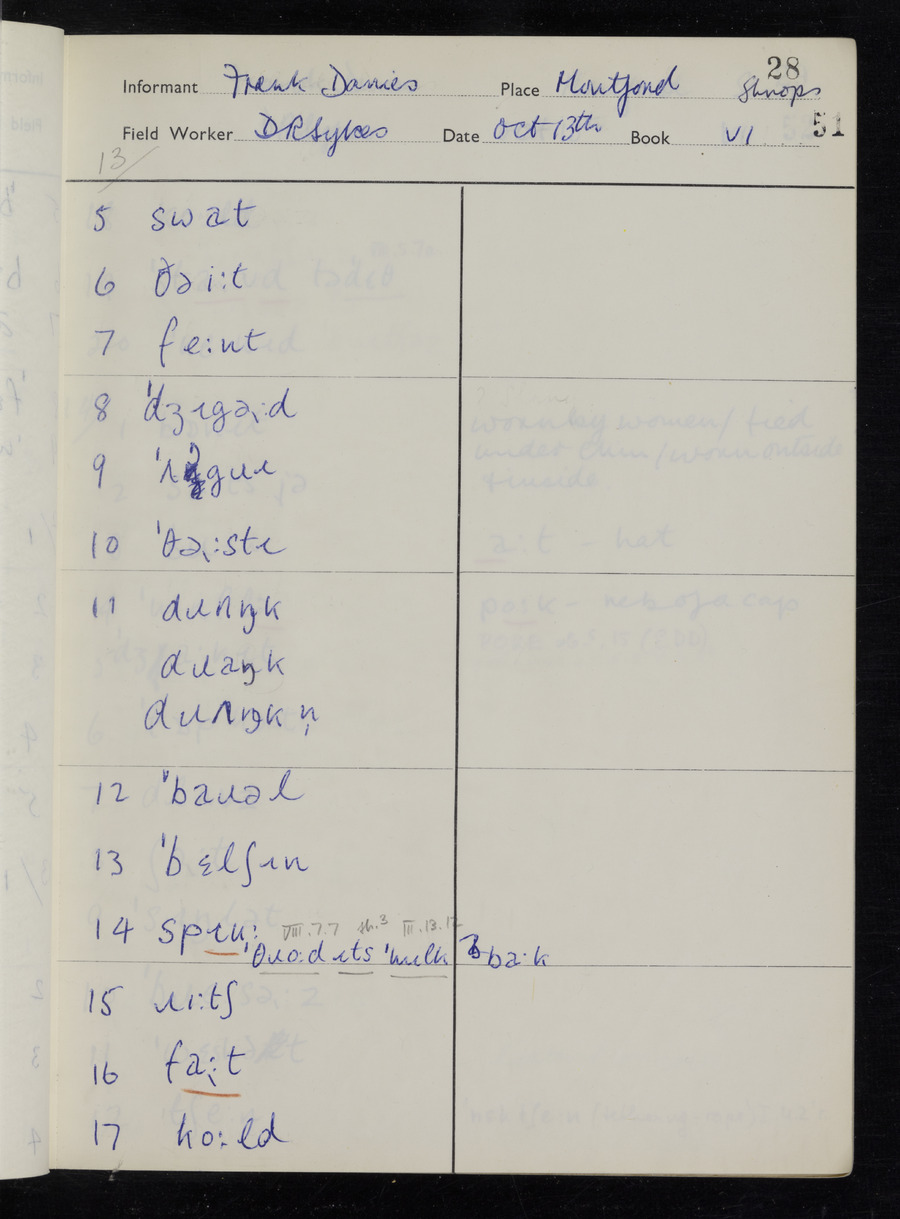 28
Informant Frank Davies Place Montford Shrops
Field Worker D R Sykes Date Oct 13th Book VI 51
13/
5 swat
6 ðəi:t
7 fe:nt
8 'dʒɪgə,:d
10 'θə,:stɪ
11 dɹʌŋk
dɹaŋk
dɹʌŋkn̩
12 'baɹəl
13 'bɛlʃɪn
14 spɪu: VIII.7.7 sh.3 III.13.12
'θɹo:d ɪts 'mɪlk ba:k
15 ɹi:tʃ
16 fa̙:t
17 ko:ld